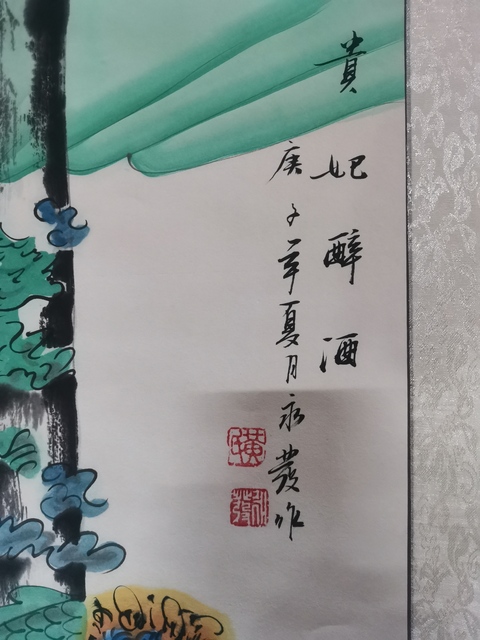 貴妃醉酒
庚子年夏月永發作